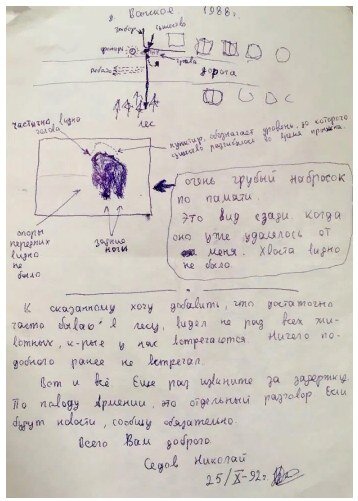 Важное 1988 г.
забор
существо
фонарь
Я
трава
дорога
лес
частично видно
голова
пунктир, обозначает уровень, до которого
существо
во время прыжка.
опоры
передних
видно
не
было
задние
ноги
очень грубый набросок
по памяти.
Это вид сзади, когда
оно уже удалялось от
меня. Хвоста видно
не было.
К сказанному хочу добавить, что достаточно
часто бываю в лесу, видел не раз всех жи-
вотных, к-рые у нас встречаются. Ничего по-
добного ранее не встречал.
Вот и всё. Еще раз извините за задержку
По поводу Армении, это отдельный разговор Если
будут новости, сообщу обязательно.
Всего Вам доброго.
Седов Николай
25/X-92г.